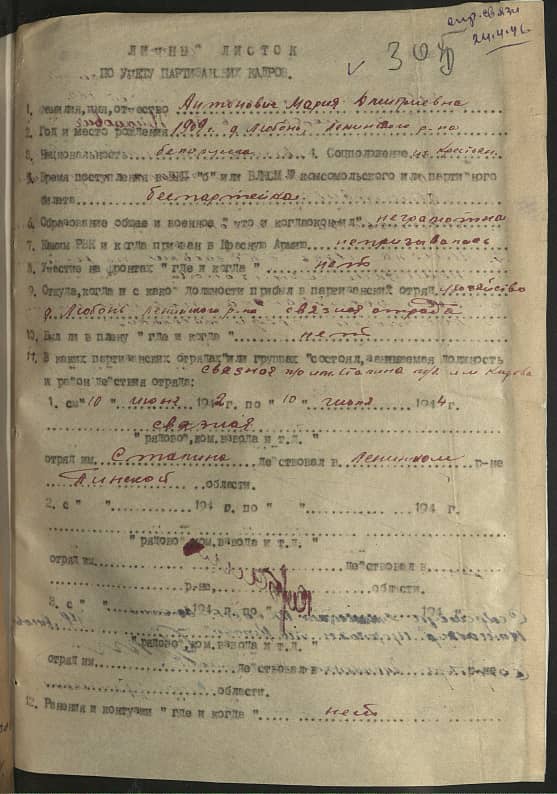 опер. связи
24.4.46
ЛИЧНЫЙ ЛИСТОК
305
ПО УЧЕТУ ПАРТИЗАНСКИХ КАДРОВ.
1. Фамилия, имя, отчество Антонович Мария Дмитриевна
2. Год и место рождения 1909 г. д. Любань, Ленинского р-на
3. Национальность белоруска 4. Соцположение из крестьян
5. Время поступления в ВКП "б" или ВЛКСМ № комсомольского или партийного
билета беспартейная
6. Образование общее и военное "что и когда окончил" неграмотна
7. Каким РВК и когда призван в Красную Армию непризывалась
8. Участие на фронтах "где и когда" нет
9. Откуда, когда и с какой должности прибыл в партизанский отряд хозяйство
д. Любань Ленинского р-на связная отряда
10. Был ли в плену "где и когда" нет
11. В каких партизанских отрядах "или группах" состоял, занимаемая должность
связная п/о им. Сталина п/бр им. Кирова
и район действия отряда:
1. с "10" июня 1942 г. по "10" июля 1944 г.
связная
"рядовой, ком. взвода и т.д."
отряд им. Сталина действовал в Ленинском р-не
Пинской области.
2. с " " 194 г. по " " 194 г.
"рядовой ком. взвода и т.д."
отряд им. действовал в
р-не, области.
3. с " " 194 г. по " " 194
"рядовой, ком. взвода и т.д."
отряд им. действовал в р-не
области.
12. Ранения и контузии "где и когда" нет